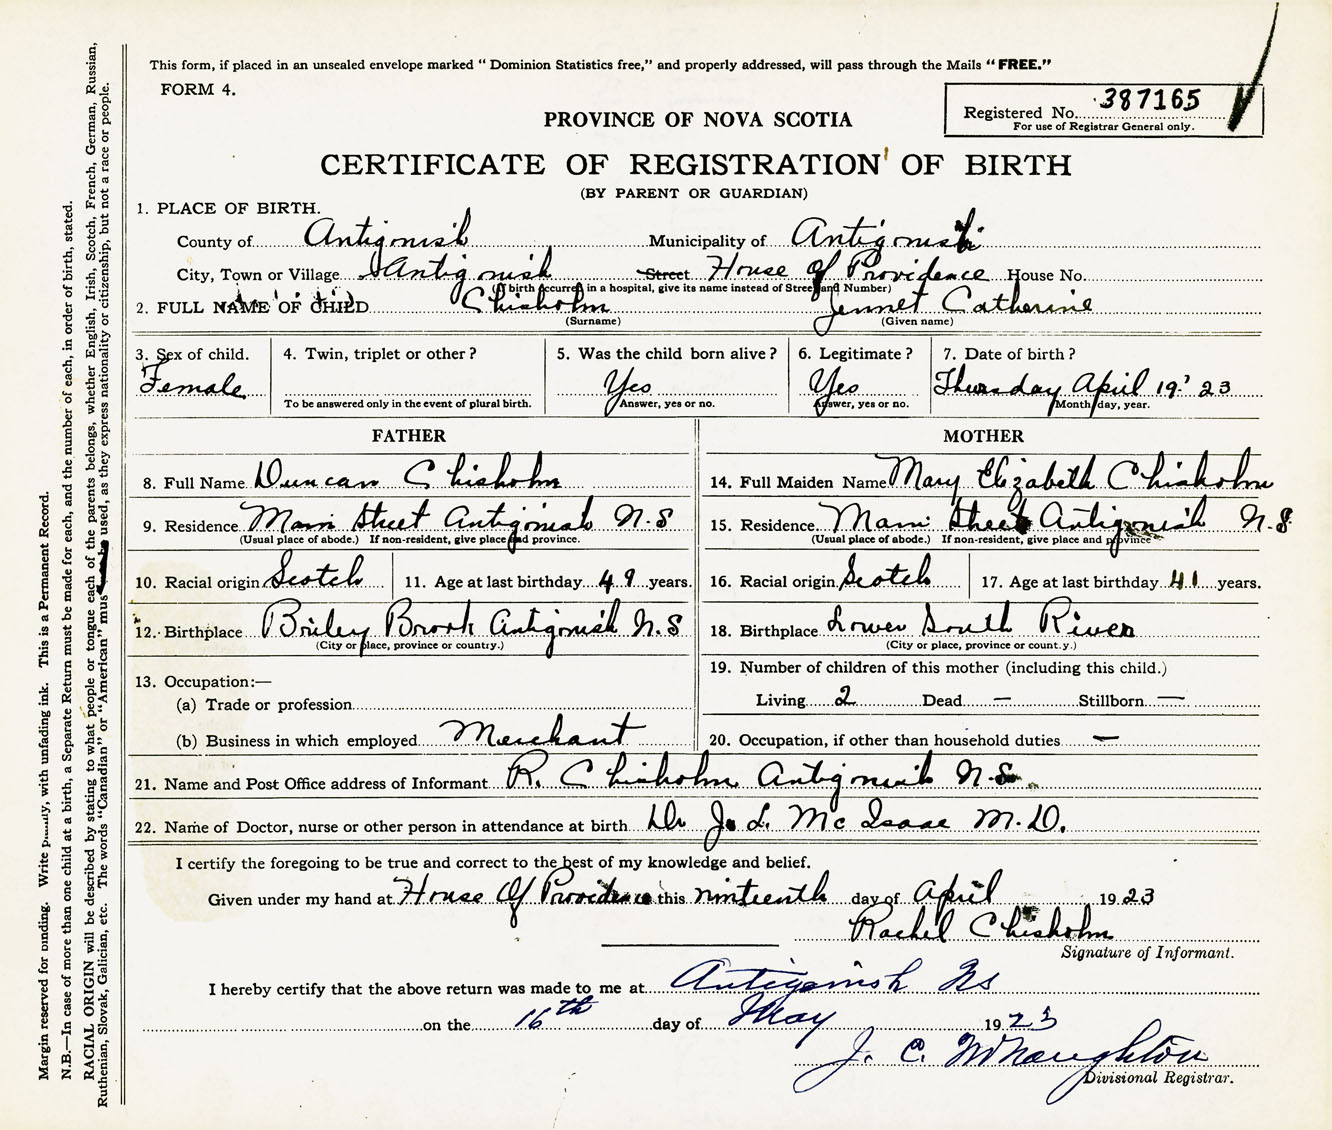 This form, if placed in an unsealed envelope marked " Dominion Statistics free," and properly addressed, will pass through the Mails "FREE."
FORM 4.
Registered No. 387165
For use of Registrar General only.
PROVINCE OF NOVA SCOTIA
CERTIFICATE OF REGISTRATION OF BIRTH
(BY PARENT OR GUARDIAN)
1. PLACE OF BIRTH.
County of Antigonish Municipality of Antigonish
City, Town or Village Antigonish Street House of Providence House No.
(If birth occurred in a hospital, give its name instead of Street and Number)
2. FULL NAME OF CHILD Chisholm Jennet Catherine
(Surname) (Given name)
3. Sex of child. 4. Twin, triplet or other ? 5. Was the child born alive ? 6. Legitimate ? 7. Date of birth ?
Female Yes Yes Thursday April 19' 23
To be answered only in the event of plural birth. Answer, yes or no. Answer, yes or no. Month, day, year.
FATHER MOTHER
8. Full Name Duncan Chisholm 14. Full Maiden Name Mary Elizabeth Chisholm
9. Residence Main Street Antigonish N.S 15. Residence Main Street Antigonish N.S.
(Usual place of abode.) If non-resident, give place and province. (Usual place of abode.) If non-resident, give place and province
10. Racial origin Scotch 11. Age at last birthday 49 years. 16. Racial origin Scotch 17. Age at last birthday 41 years.
12. Birthplace Briley Brook Antigonish N.S 18. Birthplace Lower South River
(City or place, province or country.) (City or place, province or country.)
13. Occupation:— 19. Number of children of this mother (including this child.)
(a) Trade or profession Living 2 Dead — Stillborn —
(b) Business in which employed Merchant 20. Occupation, if other than household duties —
21. Name and Post Office address of Informant R. Chisholm Antigonish N.S.
22. Name of Doctor, nurse or other person in attendance at birth Dr J. L. McIsaac M.D.
I certify the foregoing to be true and correct to the best of my knowledge and belief.
Given under my hand at House Of Providence this ninteenth day of April 1923
Rachel Chisholm
Signature of Informant.
I hereby certify that the above return was made to me at Antigonish Ns
on the 16th day of May 1923
J. C. McNaughton
Divisional Registrar.
Margin reserved for binding. Write plainly, with unfading ink. This is a Permanent Record.
N.B.—In case of more than one child at a birth, a Separate Return must be made for each, and the number of each, in order of birth, stated.
RACIAL ORIGIN will be described by stating to what people or tongue each of the parents belongs, whether English, Irish, Scotch, French, German, Russian,
Ruthenian, Slovak, Galician, etc. The words "Canadian" or "American" must used, as they express nationality or citizenship, but not a race or people.